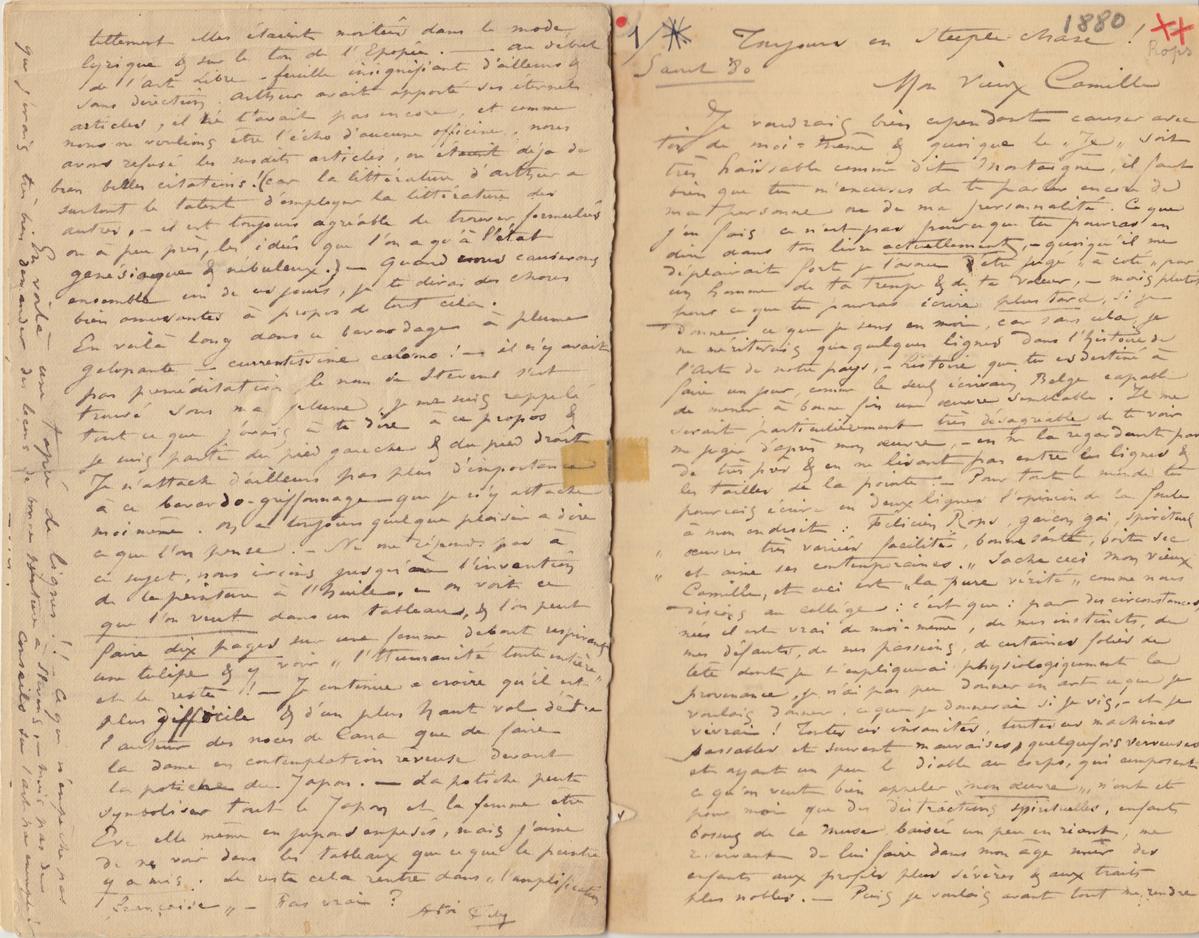 tellement elles étaient montées dans le mode
lyrique & sur le ton de l'Epopée. — au début
de l'art Libre – feuille insignifiant d'ailleurs &
sans direction. Arthur avait apporté ses éternels
articles, il ne l'avait pas encore, et comme
nous ne voulions être l'écho d'aucune officine, nous
avons refusé les susdits articles, où était déjà de
bien belles citations! (car la littérature d'Arthur a
surtout le talent d'employer la littérature des
autres, – il est toujours agréable de trouver formulés
ou à peu près, les idées que l'on a qu'à l'état
genesiaque & nebuleux.) – Quand nous causerons
ensemble un de ces jours, je te dirai des choses
bien amusantes à propos de tout cela.
En voilà long dans ce bavardages à plume
galopante – currentissime calamo! – il n'y avait
pas préméditation le nom de Stevens s'est
trouvé sous ma plume, je me suis rappelé
tout ce que j'avais à te dire à ce propos &
je suis parti du pied gauche & du pied droit
Je n'attache d'ailleurs pas plus d'importance
à ce bavardo-griffonnage – que je n'y attache
moi même. on a toujours quelque plaisir à dire
ce que l'on pense. – Ne me réponds pas à
ce sujet, nous irions jusqu'à l'invention
de la peinture à l'Huile. – on voit ce
que l'on veut dans un tableau, & l'on peut
faire dix pages sur une femme debout respirant
une tulipe & y voir „ l'Humanité toute entière „
et le reste! – Je continue a croire qu'il est
plus difficile & d'un plus haut vol d'être
l'auteur des noces de Cana que de faire
la dame en contemplation rêveuse devant
la potiche du Japon. – La potiche peut
symboliser tout le Japon et la femme être
Eve elle même en jupons empesés, mais j'aime
de ne voir dans les tableaux que ce que le peintre
y a mis. Le reste cela rentre dans „ l'amplification
française „ – Pas vrai?
à toi
En voilà une tapée de lignes!! – Ce qui n'empêche pas
que j'irais très bien demander des leçons de bonne peinture à Stevens, – mais pas des conseils sur l'art
1/
1880
Rops
Toujours en Steeple-chase!
5 aout 80
Mon Vieux Camille
Je voudrais bien cependant causer avec
toi de moi-même & quoique le „Je„ soit
très haïssable comme dit Montaigne, il faut
bien que tu m'excuses de te parler encore de
ma personne ou de ma personnalité. Ce que
j'en fais ce n'est pas pour que tu pourras en
dire dans ton livre actuellement, – quoiqu'il me
déplairait fort je l'avoue d'être jugé „ à côté „ par
un homme de ta trempe & de ta valeur, – mais plutôt
pour ce que tu pourras écrire plus tard, si je
donne ce que je sens en moi, car sans cela, je
ne mériterais que quelques lignes dans l'histoire de
l'Art de notre pays, – histoire, que tu es destiné à
faire un jour comme le seul écrivain Belge capable
de mener à bonne fin une œuvre semblable. Il me
serait particulièrement très désagréable de te voir
me juger d'après mon œuvre, – en ne la regardant pas
de très près & en ne lisant pas entre les lignes &
les tailles de la pointe! – Pour tout le monde tu
pourrais écrire en deux lignes l'opinion de la foule
à mon endroit: Félicien Rops, garçon gai, spirituel
„ œuvres très variées facilité, bonne santé, boit sec
„ et aime ses contemporains. „ Sache ceci mon vieux
Camille, et ceci est „ la pure vérité „ comme nous
disions au collége: c'est que: par des circonstances
nées il est vrai de moi-même, de mes instincts, de
mes défauts, de mes passions, de certaines folies de
tête dont je t'expliquerai physiologiquement la
provenance, je n'ai pas pu donner en art ce que je
voulais donner, ce que je donnerai si je vis, – et je
vivrai! Toutes ces insanités, toutes ces machines
passables et souvent mauvaises, quelquefois verveuses
et ayant un peu le Diable au corps, qui composent
ce qu'on veut bien appeler „mon œuvre„, n'ont été
pour moi que des distractions spirituelles, enfants
bossus de la Muse baisée un peu en riant, me
réservant de lui faire dans mon age mûr des
enfants aux profils plus sévères & aux traits
plus nobles. – Puis je voulais avant tout me rendre